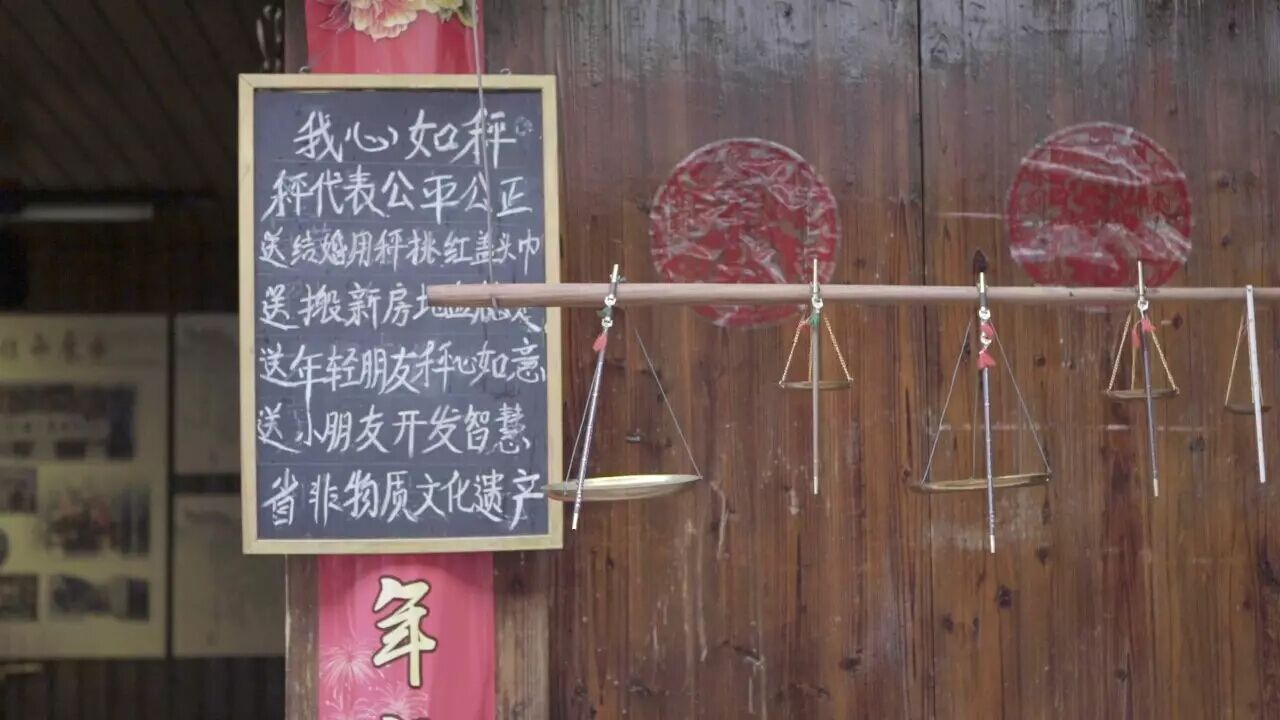 我心如秤
秤代表公平公正
送结婚用秤挑红盖头巾
送搬新房地
送年轻朋友秤心如意
送小朋友开发智慧
省非物质文化遗产
年